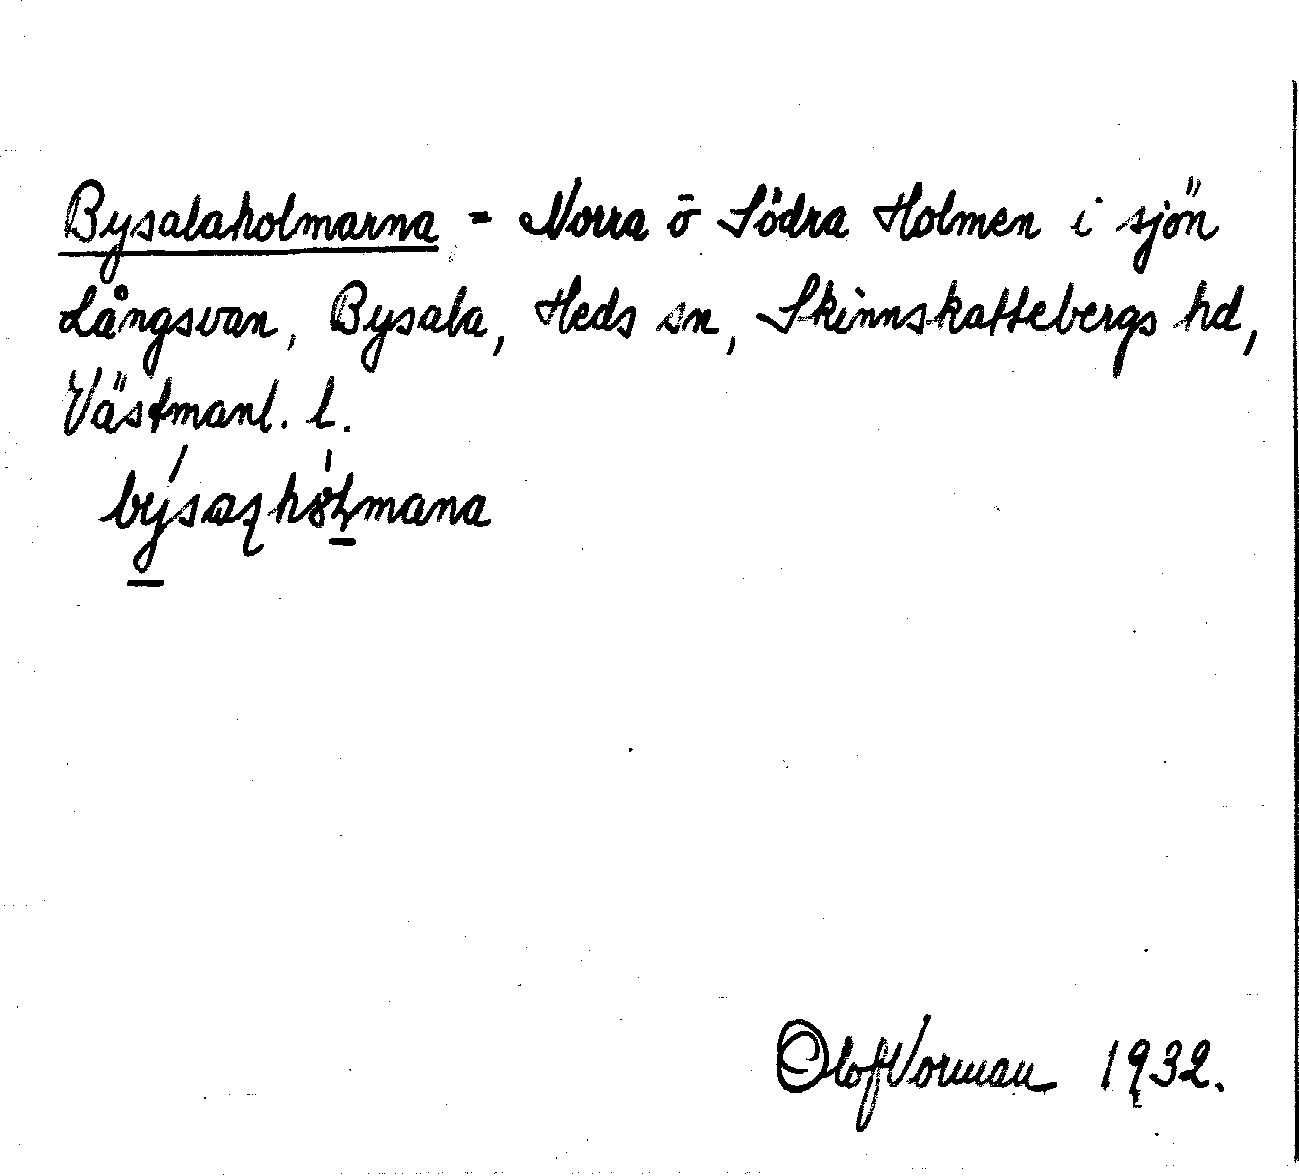 Bysalaholmarna = Norra ō Södra Holmen i sjön
Långsvan, Bysala, Heds sn, Skinnskattebergs hd,
Västmanl. l.
Olof Vorman 1932.